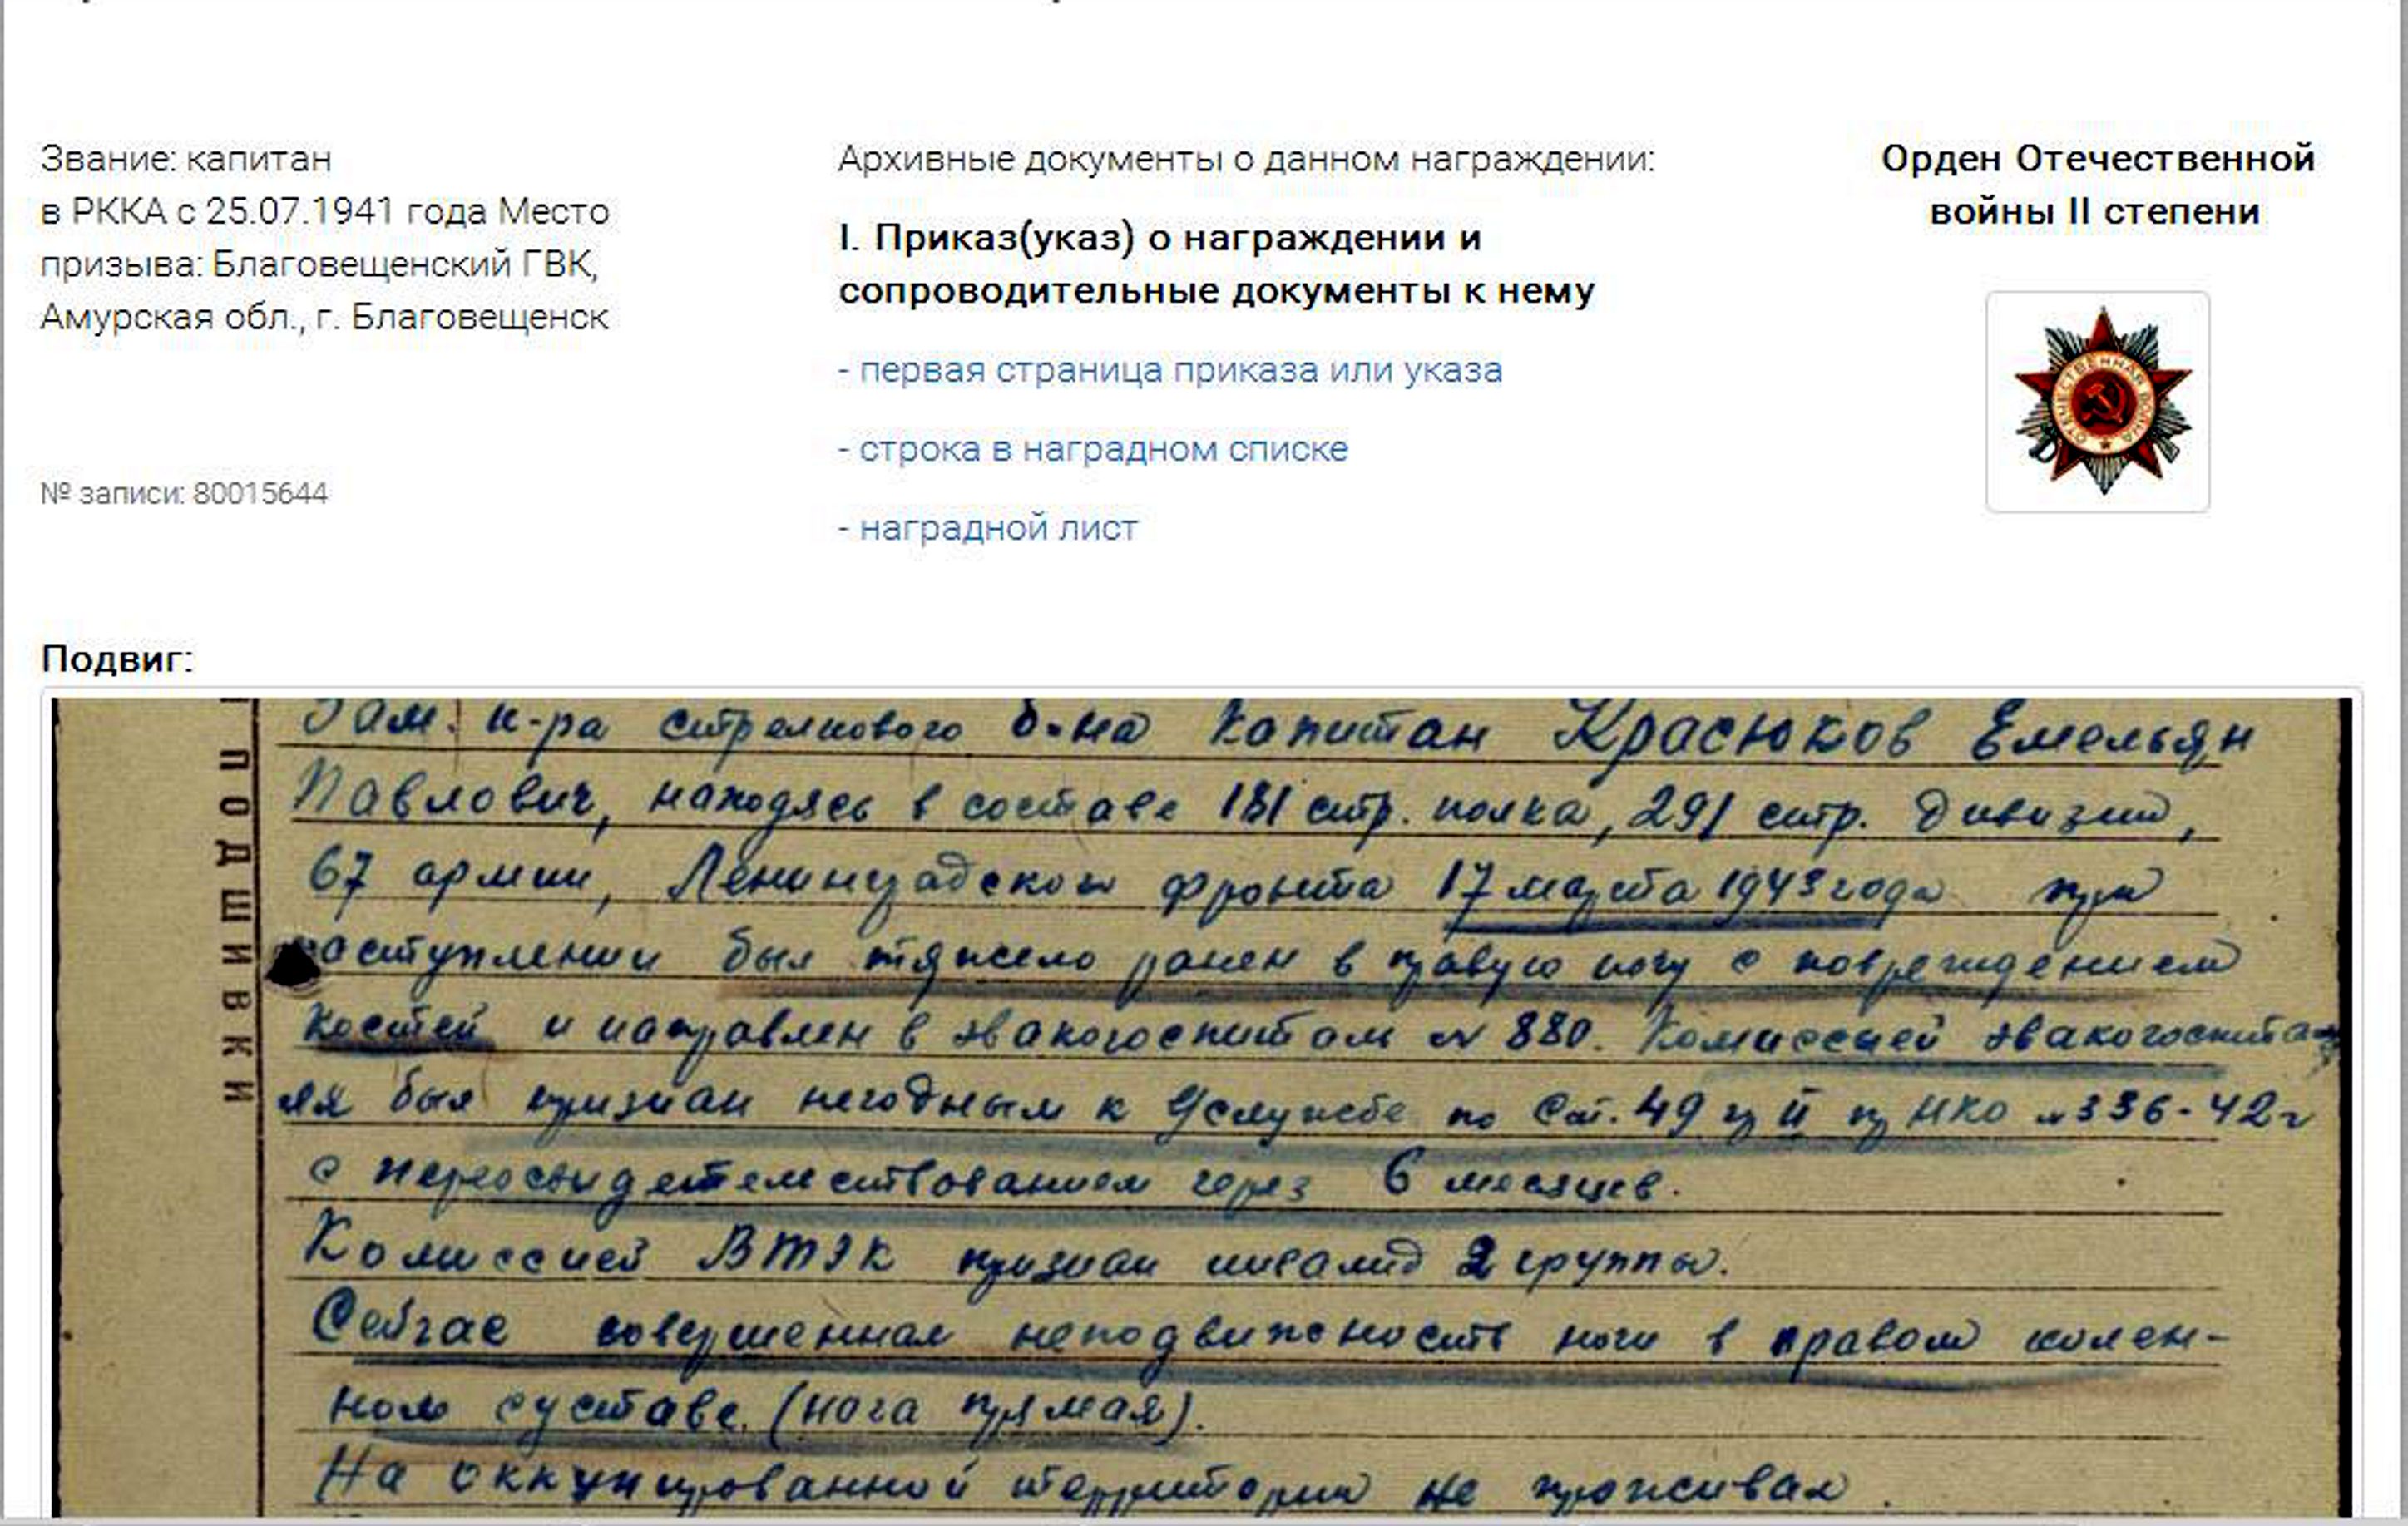 Звание: капитан
в РККА с 25.07.1941 года Место
призыва: Благовещенский ГВК,
Амурская обл., г. Благовещенск
№ записи: 80015644
Архивные документы о данном награждении:
I. Приказ(указ) о награждении и
сопроводительные документы к нему
- первая страница приказа или указа
- строка в наградном списке
- наградной лист
Орден Отечественной
войны II степени
ОТЕЧЕСТВЕННАЯ ВОЙНА
Подвиг:
ПОДШИВКИ
Зам. к-ра стрелкового б-на Капитан Красюков Емельян
Павлович, находясь в составе 181 стр. полка, 291 стр. дивизии,
67 армии, Ленинградского фронта 17 марта 1943 года при
наступлении был тяжело ранен в правую ногу с повреждением
костей и направлен в эвакогоспиталь № 880. Комиссией эвакогоспита
ля был признан негодным к службе по Ст. 49 гр II пр НКО № 336-42г
с переосвидетельствованием через 6 месяцев.
Комиссией ВТЭК признан инвалид 2 группы.
Сейчас совершенная неподвижность ноги в правом колен-
ном суставе. (нога прямая).
На оккупированной территории не проживал.